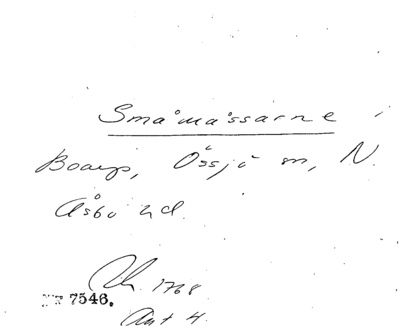 Småmåssarne
Boarp, Össjö sn, N.
Åsbo hd.
Ch. 1768
Nr 7546.
Akt 4.